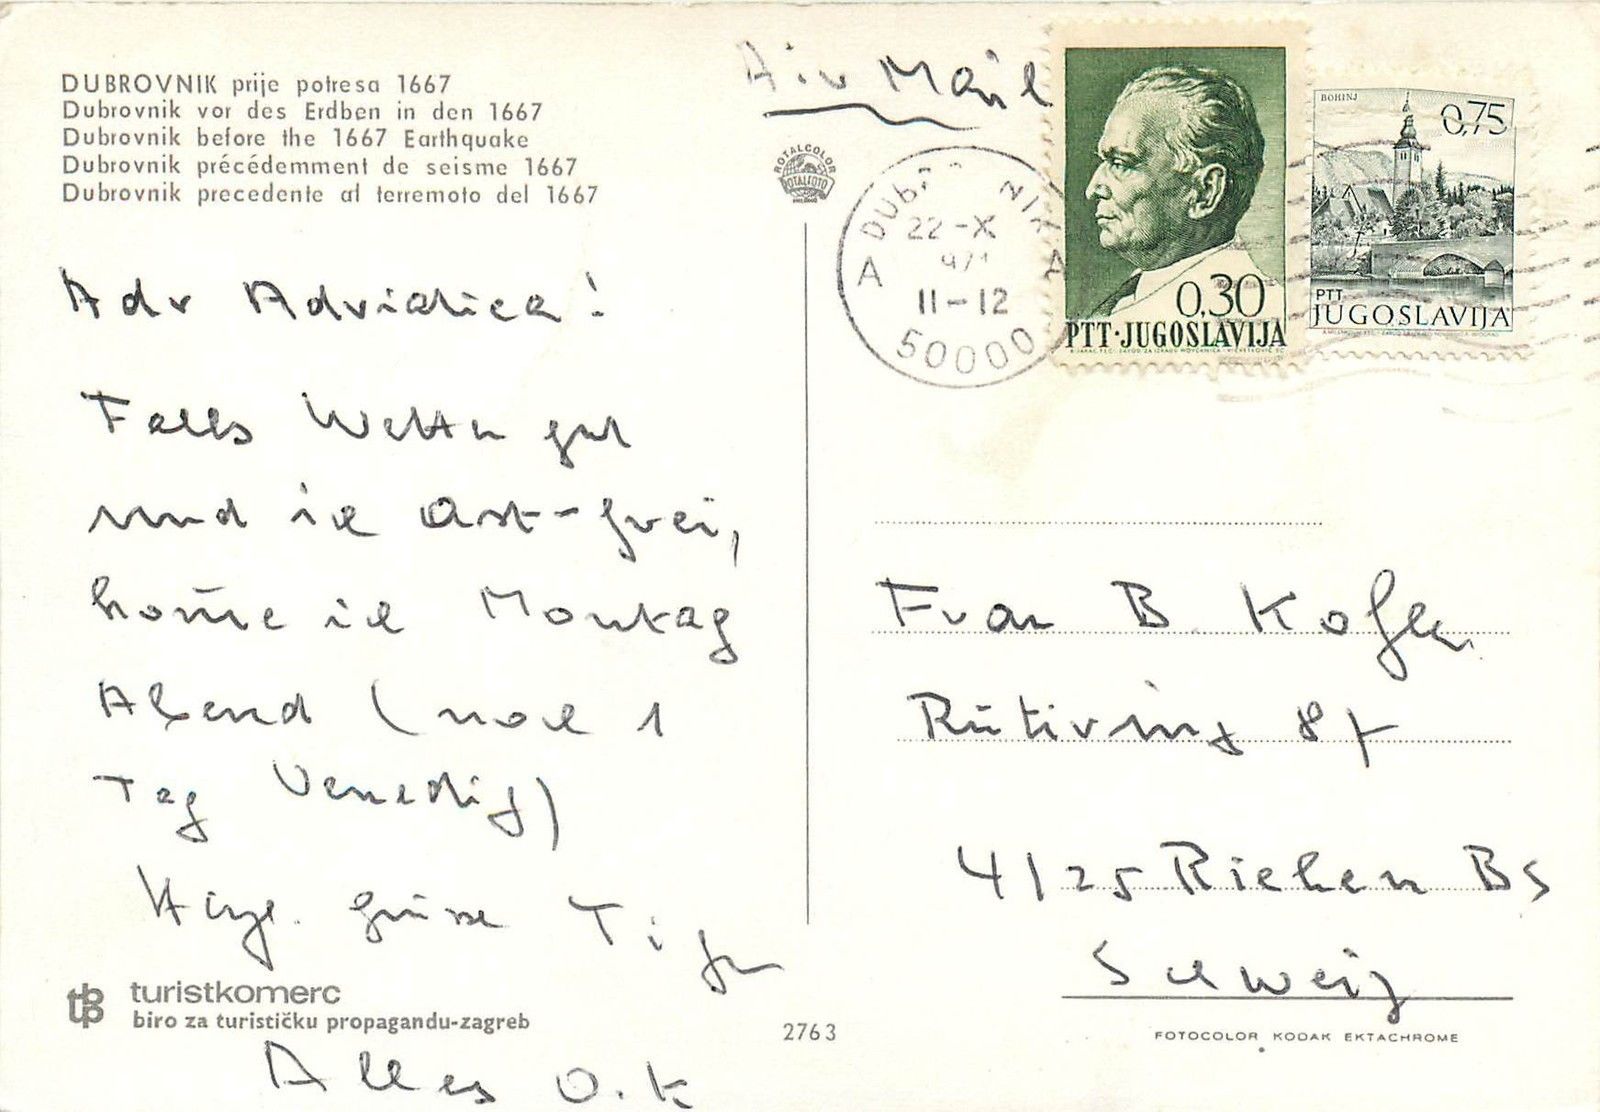 DUBROVNIK prije potresa 1667
Dubrovnik vor des Erdben in den 1667
Dubrovnik before the 1667 Earthquake
Dubrovnik précédemment de seisme 1667
Dubrovnik precedente al terremoto del 1667
Air Mail
ROTALCOLOR
TOTALFOTO
A DUB NIK 4
22-X
971
11-12
50000
0,30
PTT·JUGOSLAVIJA
BOHINJ
0,75
PTT
JUGOSLAVIJA
Adr Adriatica!
Falls Wetter gut
und ich Ast-frei,
kom̄e ich Montag
Abend (noch 1
Tag Venedig)
Herzl. Grüsse
Alles O.K
Frau B. Kofler
Rütiring 87
4125 Riehen BS
Schweiz
turistkomerc
biro za turističku propagandu-zagreb
2763
FOTOCOLOR KODAK EKTACHROME